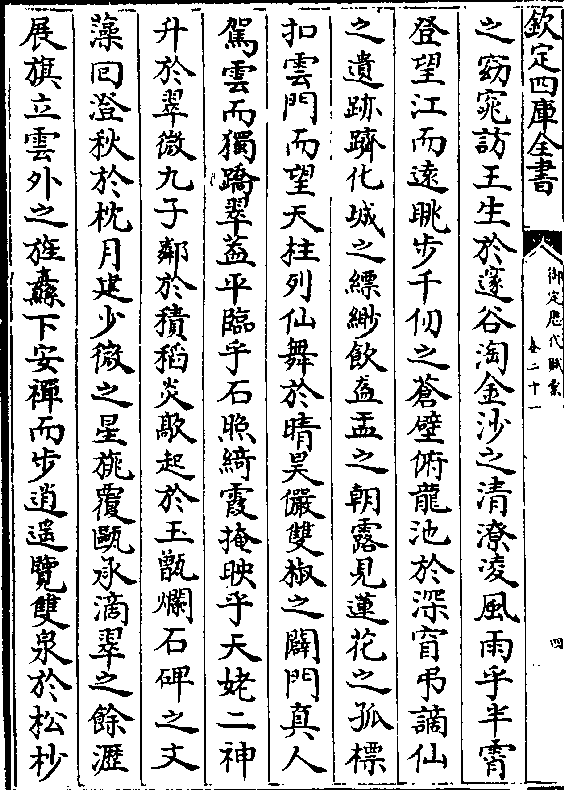 欽定四庫全書
御定歷代賦彙
卷二十一
四
之窈窕訪王生於邃谷淘金沙之清潦凌風雨乎半霄
登望江而遠眺步千仞之蒼壁俯龍池於深窅弔謫仙
之遺跡躋化城之縹緲飲盋盂之朝露見蓮花之孤標
扣雲門而望天柱列仙舞於晴昊儼雙椒之闢門真人
駕雲而獨蹻翠葢平臨乎石照綺霞掩映乎天姥二神
升於翠微九子鄰於積稻炎歊起於玉甑爛石碑之文
藻囘澄秋於枕月建少微之星旄覆甌承滴翠之餘瀝
展旗立雲外之旌纛下安禪而步逍遥覽雙泉於松杪